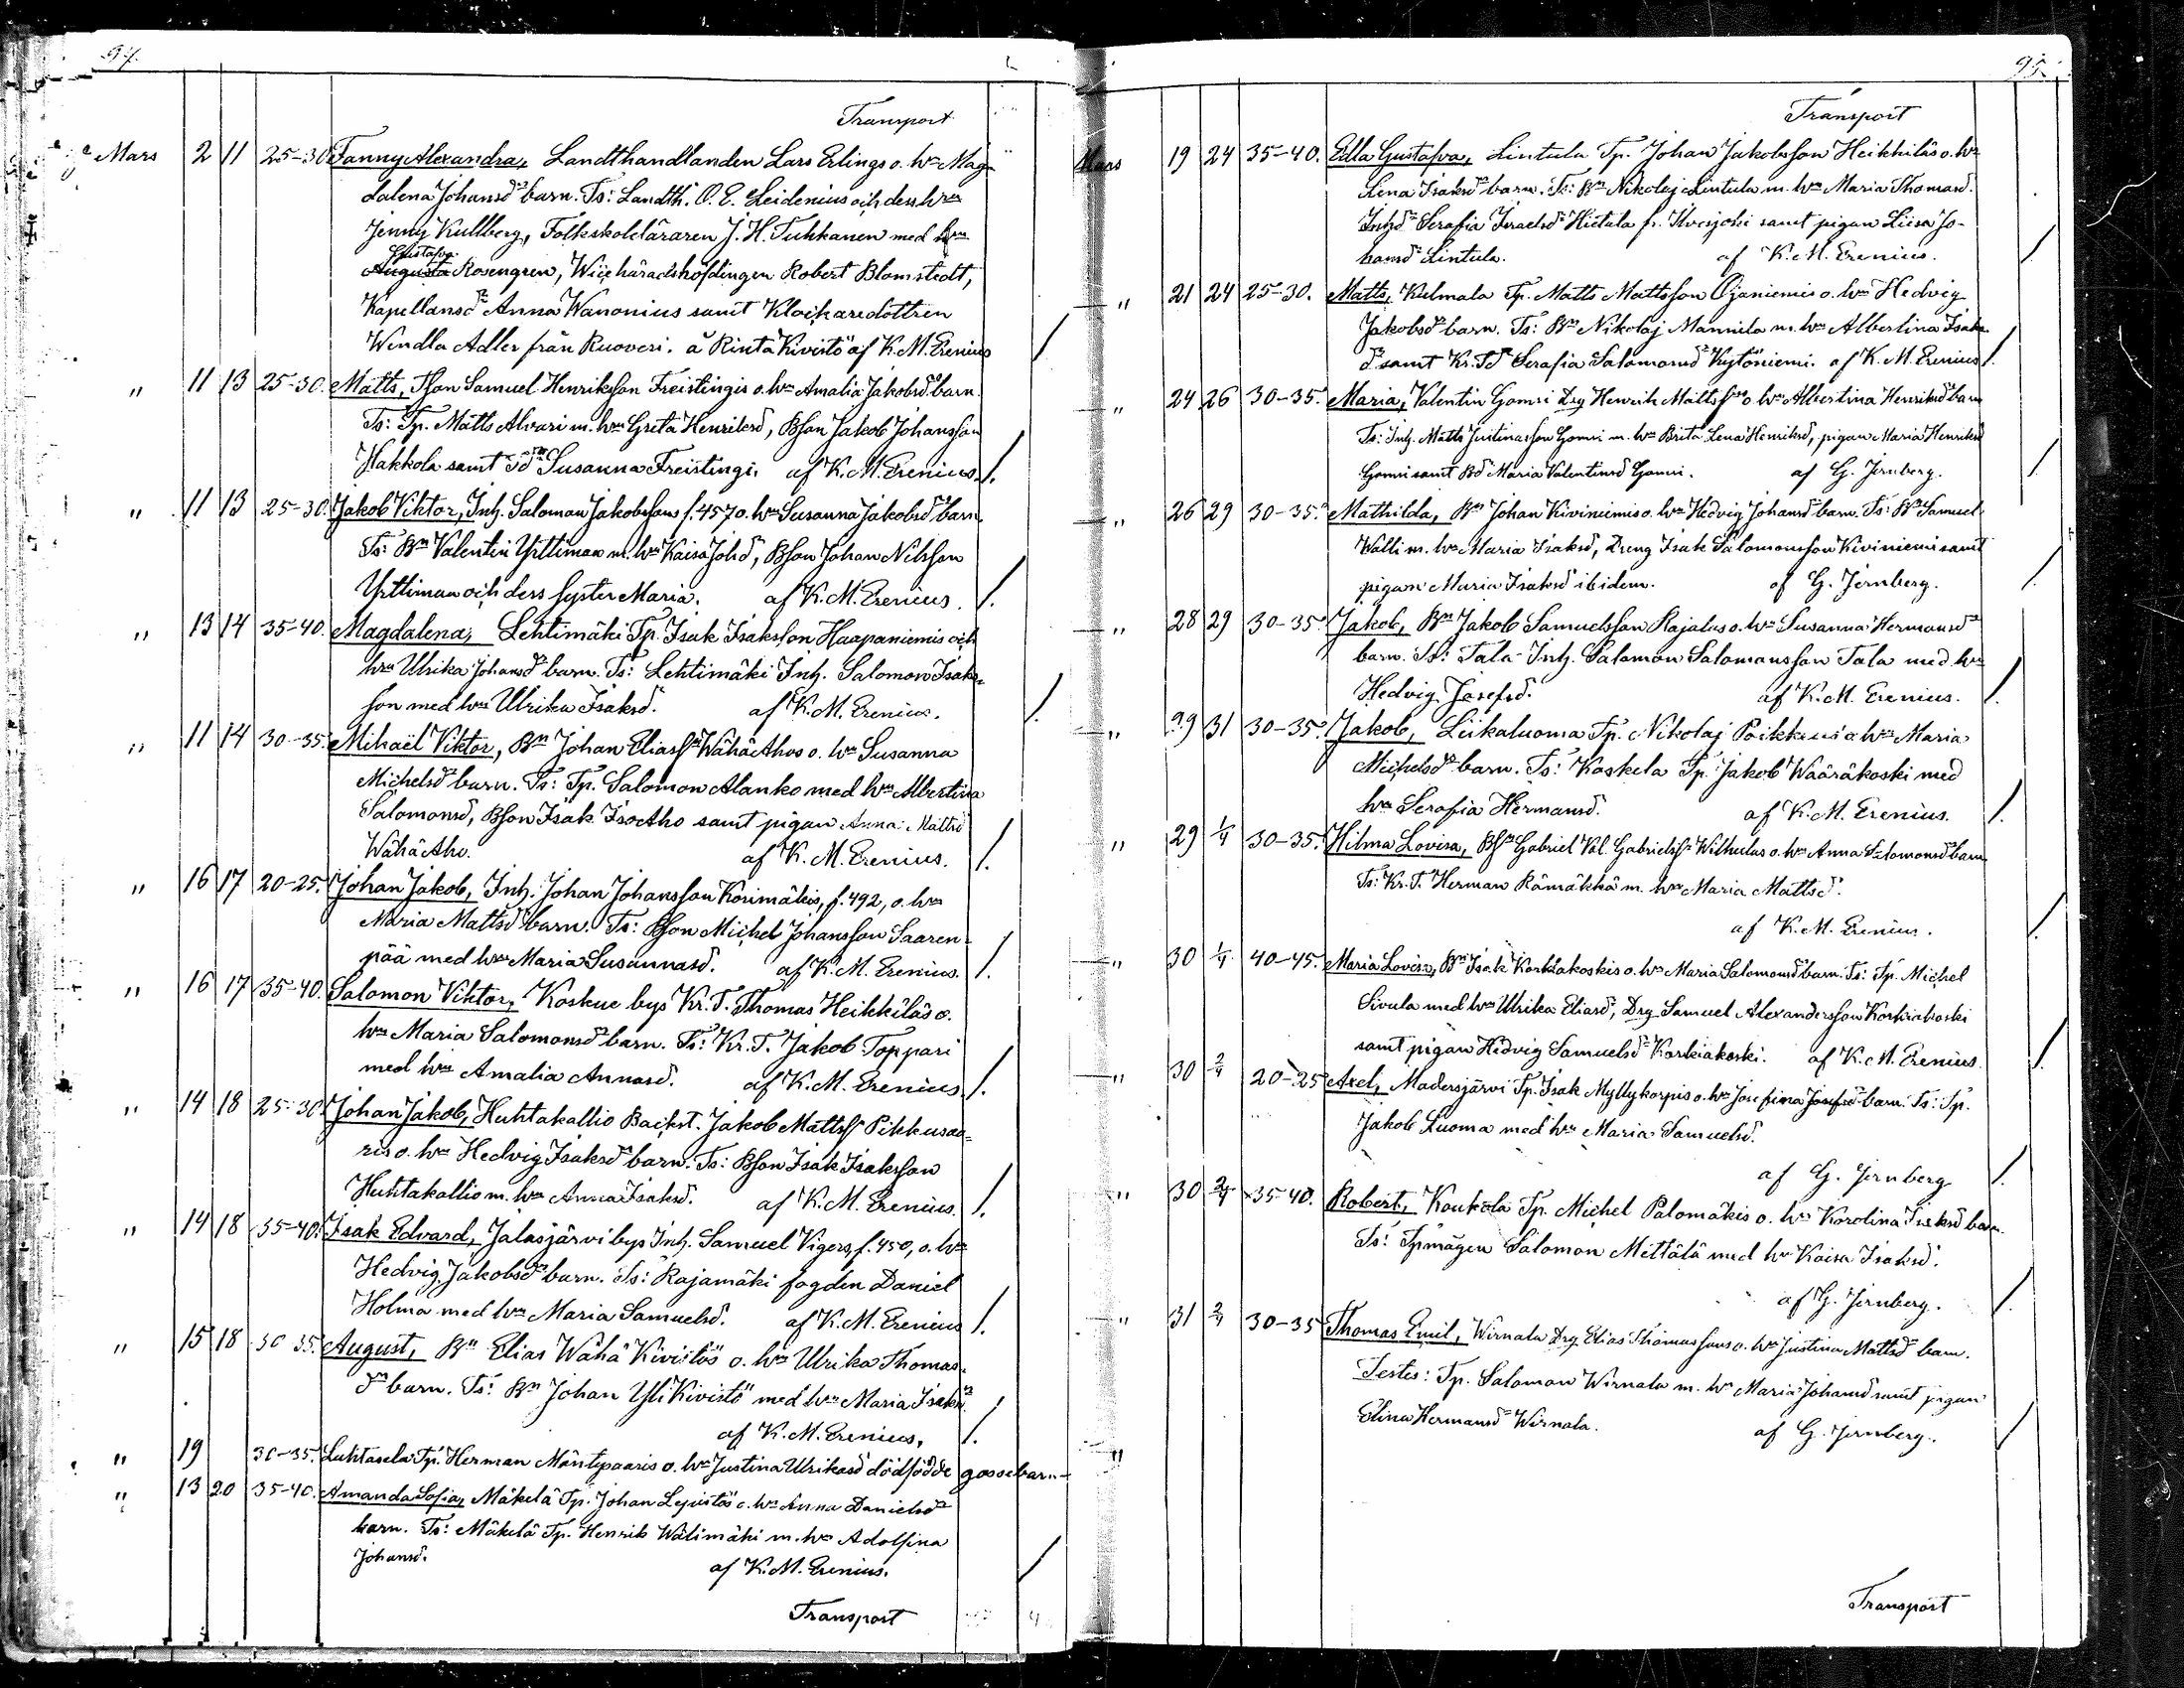 94.
Transport
Mars 2 11 25-30 Fanny Alexandra, Landthandlanden Lars Erlings o. hns Mag-
dalena Johansdrs barn. Ts: Landth. O. E. Leidenius och dess hru
Jenny Kullberg, Folkskoleläraren J. H. Tuhkanen med hru
Gustafva
Augusta Rosengren, Wice häradshöfdingen Robert Blomstedt,
Kapellansdr Anna Wanonius samt Klockaredottren
Wendla Adler från Ruovesi. å Rinta Kivistö af K. M. Erenius /
" 11 13 25-30. Matts, Tson Samuel Henriksson Freistingis o. hns Amalia Jakobsdrs barn.
Ts: Tp. Matts Alvari m. hru Greta Henriksd, Bson Jakob Johansson
Hakkola samt Tdrn Susanna Freistingi. af K. M. Erenius /.
" 11 13 25-30. Jakob Viktor, Inh. Saloman Jakobssons f. 457 o. hns Susanna Jakobsdrs barn.
Ts: Bn Valentin Yrttimaa m. hru Kaisa Johd, Bson Johan Nilsson
Yrttimaa och dess syster Maria. af K. M. Erenius. /.
" 13 14 35-40. Magdalena, Lehtimäki Tp. Isak Isaksson Haapaniemis och
hns Ulrika Johansdrs barn. Ts: Lehtimäki Inh. Salomon Isaks-
son med hru Ulrika Isaksd. af K. M. Erenius. /.
" 11 14 30-35. Mihaël Viktor, Bn Johan Eliasss WähäAhos o. hns Susanna
Michelsdrs barn. Ts: Tp. Salomon Alanko med hru Albertina
Salomonsd, Bson Isak IsoAho samt pigan Anna Mattsd
WähäAho. af K. M. Erenius. /.
" 16 17 20-25. Johan Jakob, Inh. Johan Johansson Korimäkis, f. 492, o. hns
Maria Mattsdrs barn. Ts: Bson Michel Johansson Saaren-
pää med hru Maria Susannasd. af K. M. Erenius. /.
" 16 17 35-40. Salomon Viktor, Koskue bys Kr. T. Thomas Heikkiläs o.
hns Maria Salomonsdrs barn. Ts: Kr. T. Jakob Toppari
med hru Amalia Annasd. af K. M. Erenius /.
" 14 18 25-30. Johan Jakob, Huhtakallio Backst. Jakob Mattss Pikkusaa-
ris o. hns Hedvig Isaksdrs barn. Ts: Bson Isak Isaksson
Huhtakallio m. hru Anna Isaksd. af K. M. Erenius. /.
" 14 18 35-40. Isak Edvard, Jalasjärvi bys Inh. Samuel Vigers, f. 450, o. hns
Hedvig Jakobsdrs barn. Ts: Rajamäki fogden Daniel
Holma med hru Maria Samuelsd. af K. M. Erenius /.
" 15 18 30 35. August, Bn Elias Wähä Kivistös o. hns Ulrika Thomas-
drs barn. Ts: Bn Johan Yli Kivistö med hru Maria Isaksd.
af K. M. Erenius. /.
" 19 30-35. Luhtasela Tp. Herman Mäntypaaris o. hns Justina Ulrikasd dödfödde gossebarn
" 13 20 35-40. Amanda Sofia, Mäkelä Tp. Johan Lepistös o. hns Anna Danielsdrs
barn. Ts: Mäkelä Tp. Henrik Wälimäki m. hru Adolfina
Johansd. af K. M. Erenius. /
Transport
95.
Transport
Mars 19 24 35-40. Edla Gustafva, Lintula Tp. Johan Jakobsson Heikkiläs o. hns
Lena Isaksdrs barn. Ts: Bn Nikolaj Lintula m. hru Maria Thomasd.
Inhdr Serafia Israelsdr Hietala fr. Ilvesjoki samt pigan Liisa Jo-
hansdr Lintula. af K. M. Erenius. /
" 21 24 25-30. Matts, Kulmala Tp. Matts Mattsson Ojaniemis o. hns Hedvig
Jakobsdrs barn. Ts: Bn Nikolaj Mannila m. hru Albertina Isaks-
dr samt Kr. Tdr Serafia Salomonsdr Kytöniemi. af K. M. Erenius /.
" 24 26 30-35. Maria, Valentin Gomsi Drg Henrik Mattss o. hns Albertina Henriksdrs barn
Ts: Inh. Matts Justinasson Gomsi m. hru Brita Lena Henriksd, pigan Maria Henriksd
Gomsi samt Bd Maria Valentinsd Gomsi. af G. Jernberg. /.
" 26 29 30-35. Mathilda, Bn Johan Kiviniemis o. hns Hedvig Johansdrs barn. Ts: Bn Samuel
Walli m. hru Maria Isaksd, Dreng Isak Salomonsson Kiviniemi samt
pigan Maria Isaksd ibidem. af G. Jernberg. /.
" 28 29 30-35. Jakob, Bn Jakob Samuelsson Rajalas o. hns Susanna Hermansdrs
barn. Ts: Tala Inh. Salomon Salomonsson Tala med hru
Hedvig Josefsd. af K. M. Erenius. /.
" 29 31 30-35. Jakob, Liikaluoma Tp. Nikolaj Poikkeus o. hns Maria
Michelsdrs barn. Ts: Koskela Tp. Jakob Wääräkoski med
hru Serafia Hermansd. af K. M. Erenius. /.
" 29 1/4 30-35. Hilma Lovisa, Bsn Gabriel Val. Gabrielss Wilhulas o. hns Anna Salomonsdrs barn
Ts: Kr. T. Herman Rämäkkä m. hru Maria Mattsd.
af K. M. Erenius. /.
" 30 1/4 40-45. Maria Lovisa, Bn Isak Korkiakoskis o. hns Maria Salomonsdrs barn. Ts: Tp. Michel
Sivula med hru Ulrika Eliasd, Drg Samuel Alexandersson Korkiakoski
samt pigan Hedvig Samuelsdr Korkiakoski. af K. M. Erenius /.
" 30 2/4 20-25 Axel, Madesjärvi Tp. Isak Myllykorpis o. hns Josefina Josefsd barn. Ts: Tp.
Jakob Luoma med hru Maria Samuelsd.
af G. Jernberg /.
" 30 2/4 35-40. Robert, Koukola Tp. Michel Palomäkis o. hns Karolina Isaksd barn.
Ts: Tpmågen Salomon Mittälä med hru Kaisa Isaksd.
af G. Jernberg. /.
" 31 2/4 30-35 Thomas Emil, Wirnala Drg. Elias Thomassons o. hns Justina Mattsd barn.
Testes: Tp. Salomon Wirnala m. hru Maria Johansd samt pigan
Elina Hermansdr Wirnala. af G. Jernberg. /
"
Transport